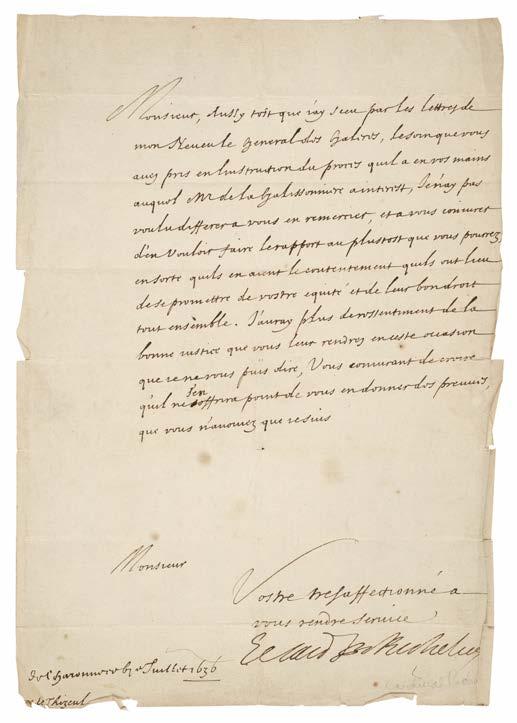 Monsieur, Aussy tost que j'ay sceu par les lettres de
mon Neveu le General des Galeres, le soin que vous
avez pris en l'instruction du proces qu'il a en vos mains
auquel Mr de la Galissonniere a interest, Je n'ay pas
voulu differer a vous en remercier, et a vous coniurer
d'en vouloir faire le rapport au plustost que vous pourrez,
en sorte qu'ils en aient le contentement qu'ils ont lieu
de se promettre de vostre equité et de leur bon droit
tout ensemble. J'auray plus de ressentiment de la
bonne iustice que vous leur rendrez en ceste occasion
que ie ne vous puis dire, Vous coniurant de croire
qu'il ne s'en offrira point de vous en donner des preuves,
que vous n'avouiez que ie suis
Monsieur
Vostre tresaffectionné a
vous rendre service
Le Card de Richelieu
De Charonne ce 6e Juillet 1636